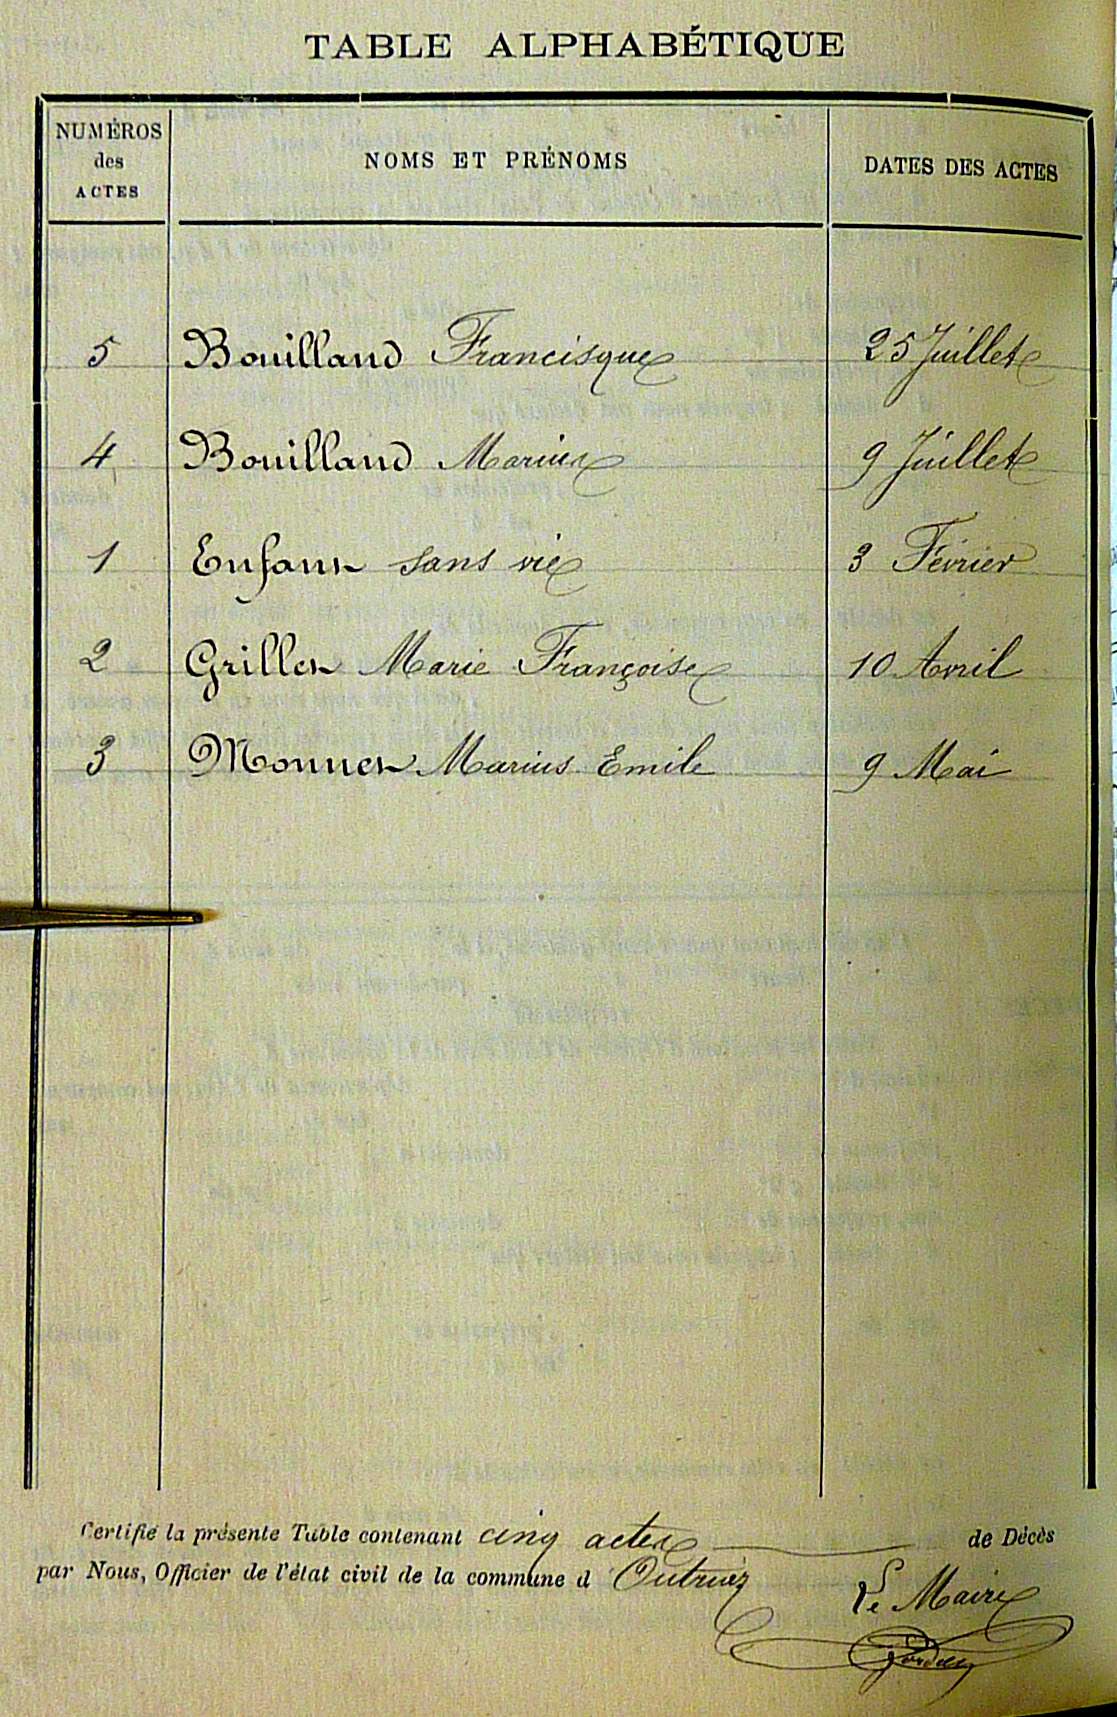 TABLE ALPHABÉTIQUE
NUMÉROS des ACTES NOMS ET PRÉNOMS DATES DES ACTES
5 Bouilland Francisque 25 Juillet
4 Bouilland Marius 9 Juillet
1 Enfant sans vie 3 Février
2 Grillet Marie Françoise 10 Avril
3 Monnet Marius Emile 9 Mai
Certifié la présente Table contenant cinq actes de Décès
par Nous, Officier de l'état civil de la commune d'Outriaz
Le Maire